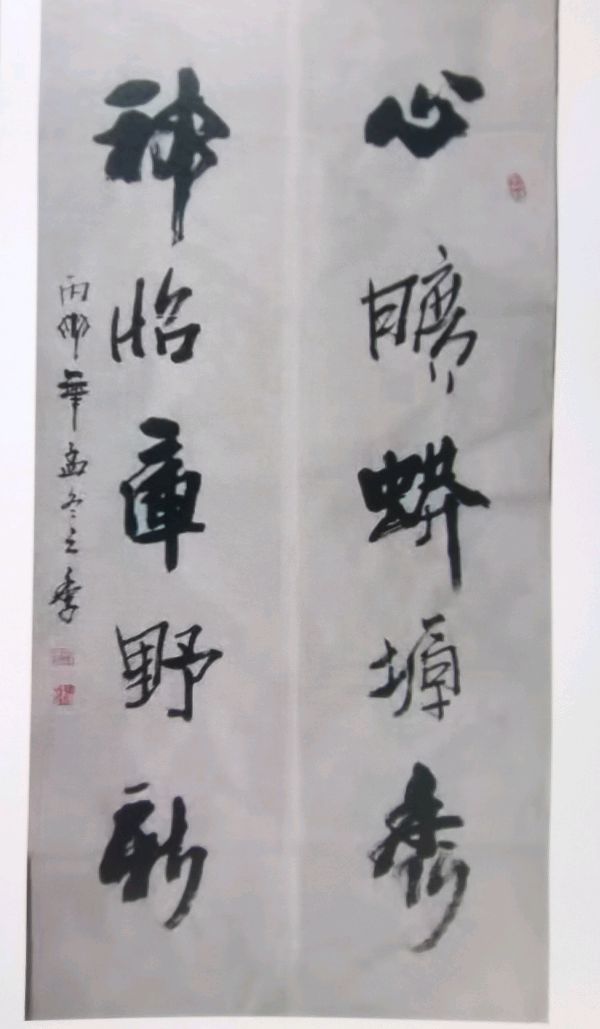 心曠蟒墇秀
神怡章野新
丙申年孟冬之季